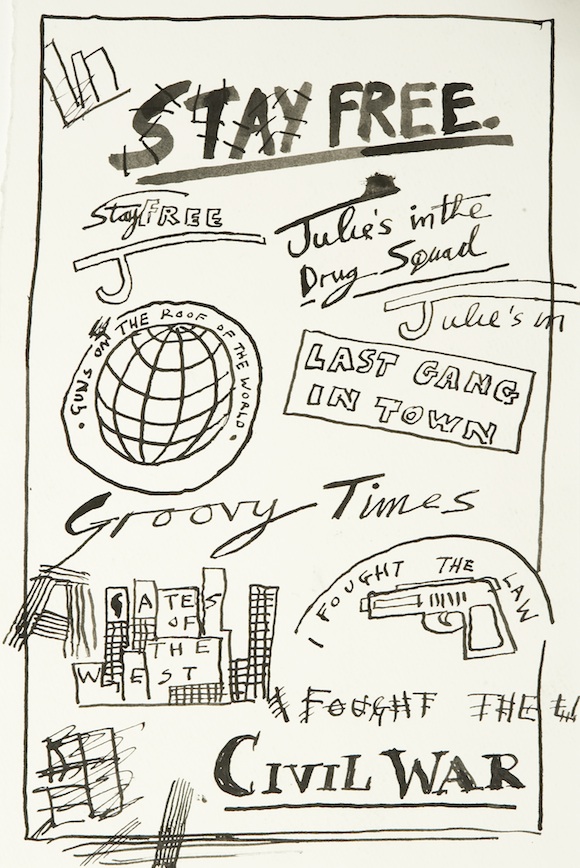 STAY FREE.
Stay FREE
Julie's in the
Drug Squad
J
Julie's in
GUNS ON THE ROOF OF THE WORLD
LAST GANG
IN TOWN
Groovy Times
GATES
OF
THE
WEST
I FOUGHT THE LAW
FOUGHT THE
CIVIL WAR